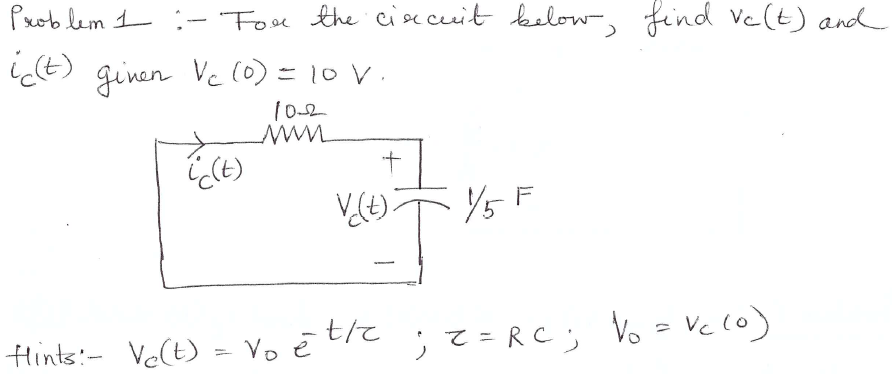 Problem 1 :- For the circuit below, find Vc(t) and
ic(t) given Vc (0) = 10 V.
10Ω
ic(t)
+
Vc(t)
1/5 F
-
Hints:- Vc(t) = V0 e^-t/τ ; τ = RC ; V0 = Vc(0)